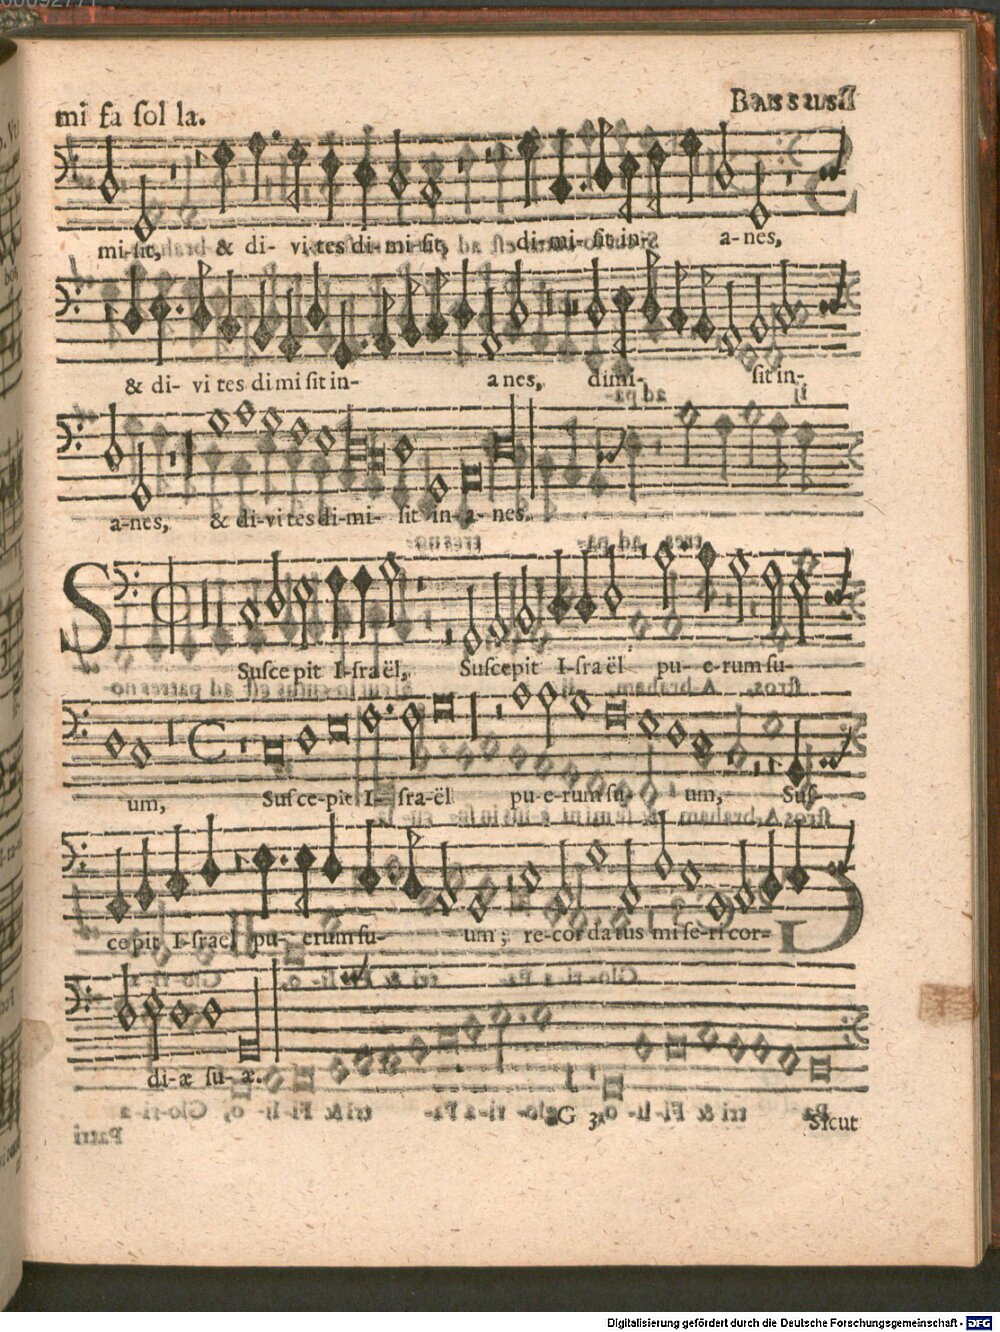 mi fa sol la.
Bassus.
mi-sit, & di- vi-tes di-mi-sit, di-mi- sit in- a-nes,
& di- vi tes di mi sit in- a nes, dimi- sit in-
a-nes, & di-vi tes di-mi- sit in-a-nes.
Susce pit I-sra ël, Suscepit I-sra ël pu- e-rum su-
um, Sus ce-pit I- sra-ël pu-e-rum su- um, Sus-
ce pit I-srael pu- erum su- um; re-cor da tus mi se-ri cor-
di-æ su- æ.
G 3
Sicut
Digitalisierung gefördert durch die Deutsche Forschungsgemeinschaft - DFG